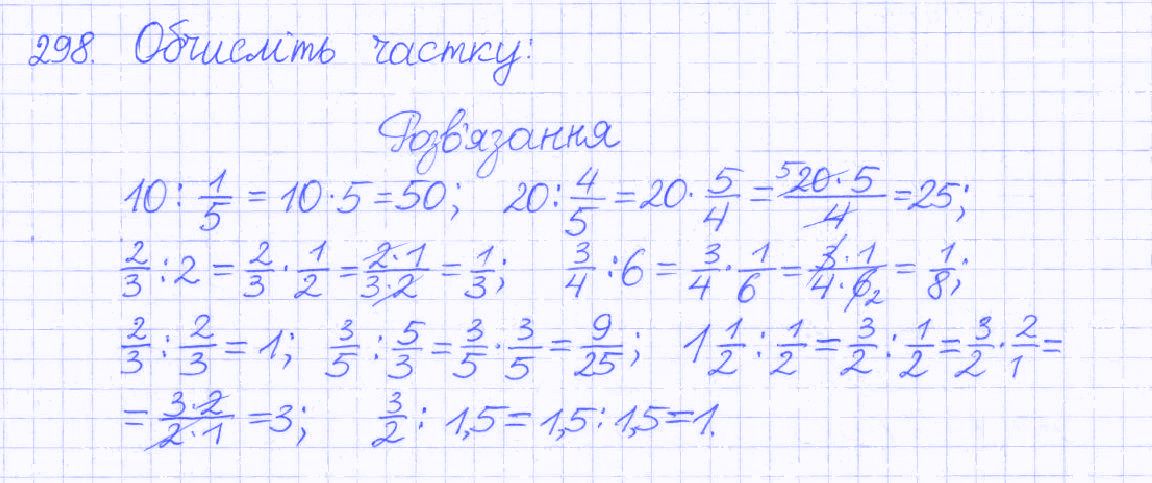 298. Обчисліть частку:
Розв'язання
10 : 1/5 = 10 · 5 = 50; 20 : 4/5 = 20 · 5/4 = ⁵20 · 5/4 = 25;
2/3 : 2 = 2/3 · 1/2 = 2 · 1/3 · 2 = 1/3; 3/4 : 6 = 3/4 · 1/6 = 3 · 1/4 · 6₂ = 1/8;
2/3 : 2/3 = 1; 3/5 : 5/3 = 3/5 · 3/5 = 9/25; 1 1/2 : 1/2 = 3/2 : 1/2 = 3/2 · 2/1 =
= 3 · 2/2 · 1 = 3; 3/2 : 1,5 = 1,5 : 1,5 = 1.